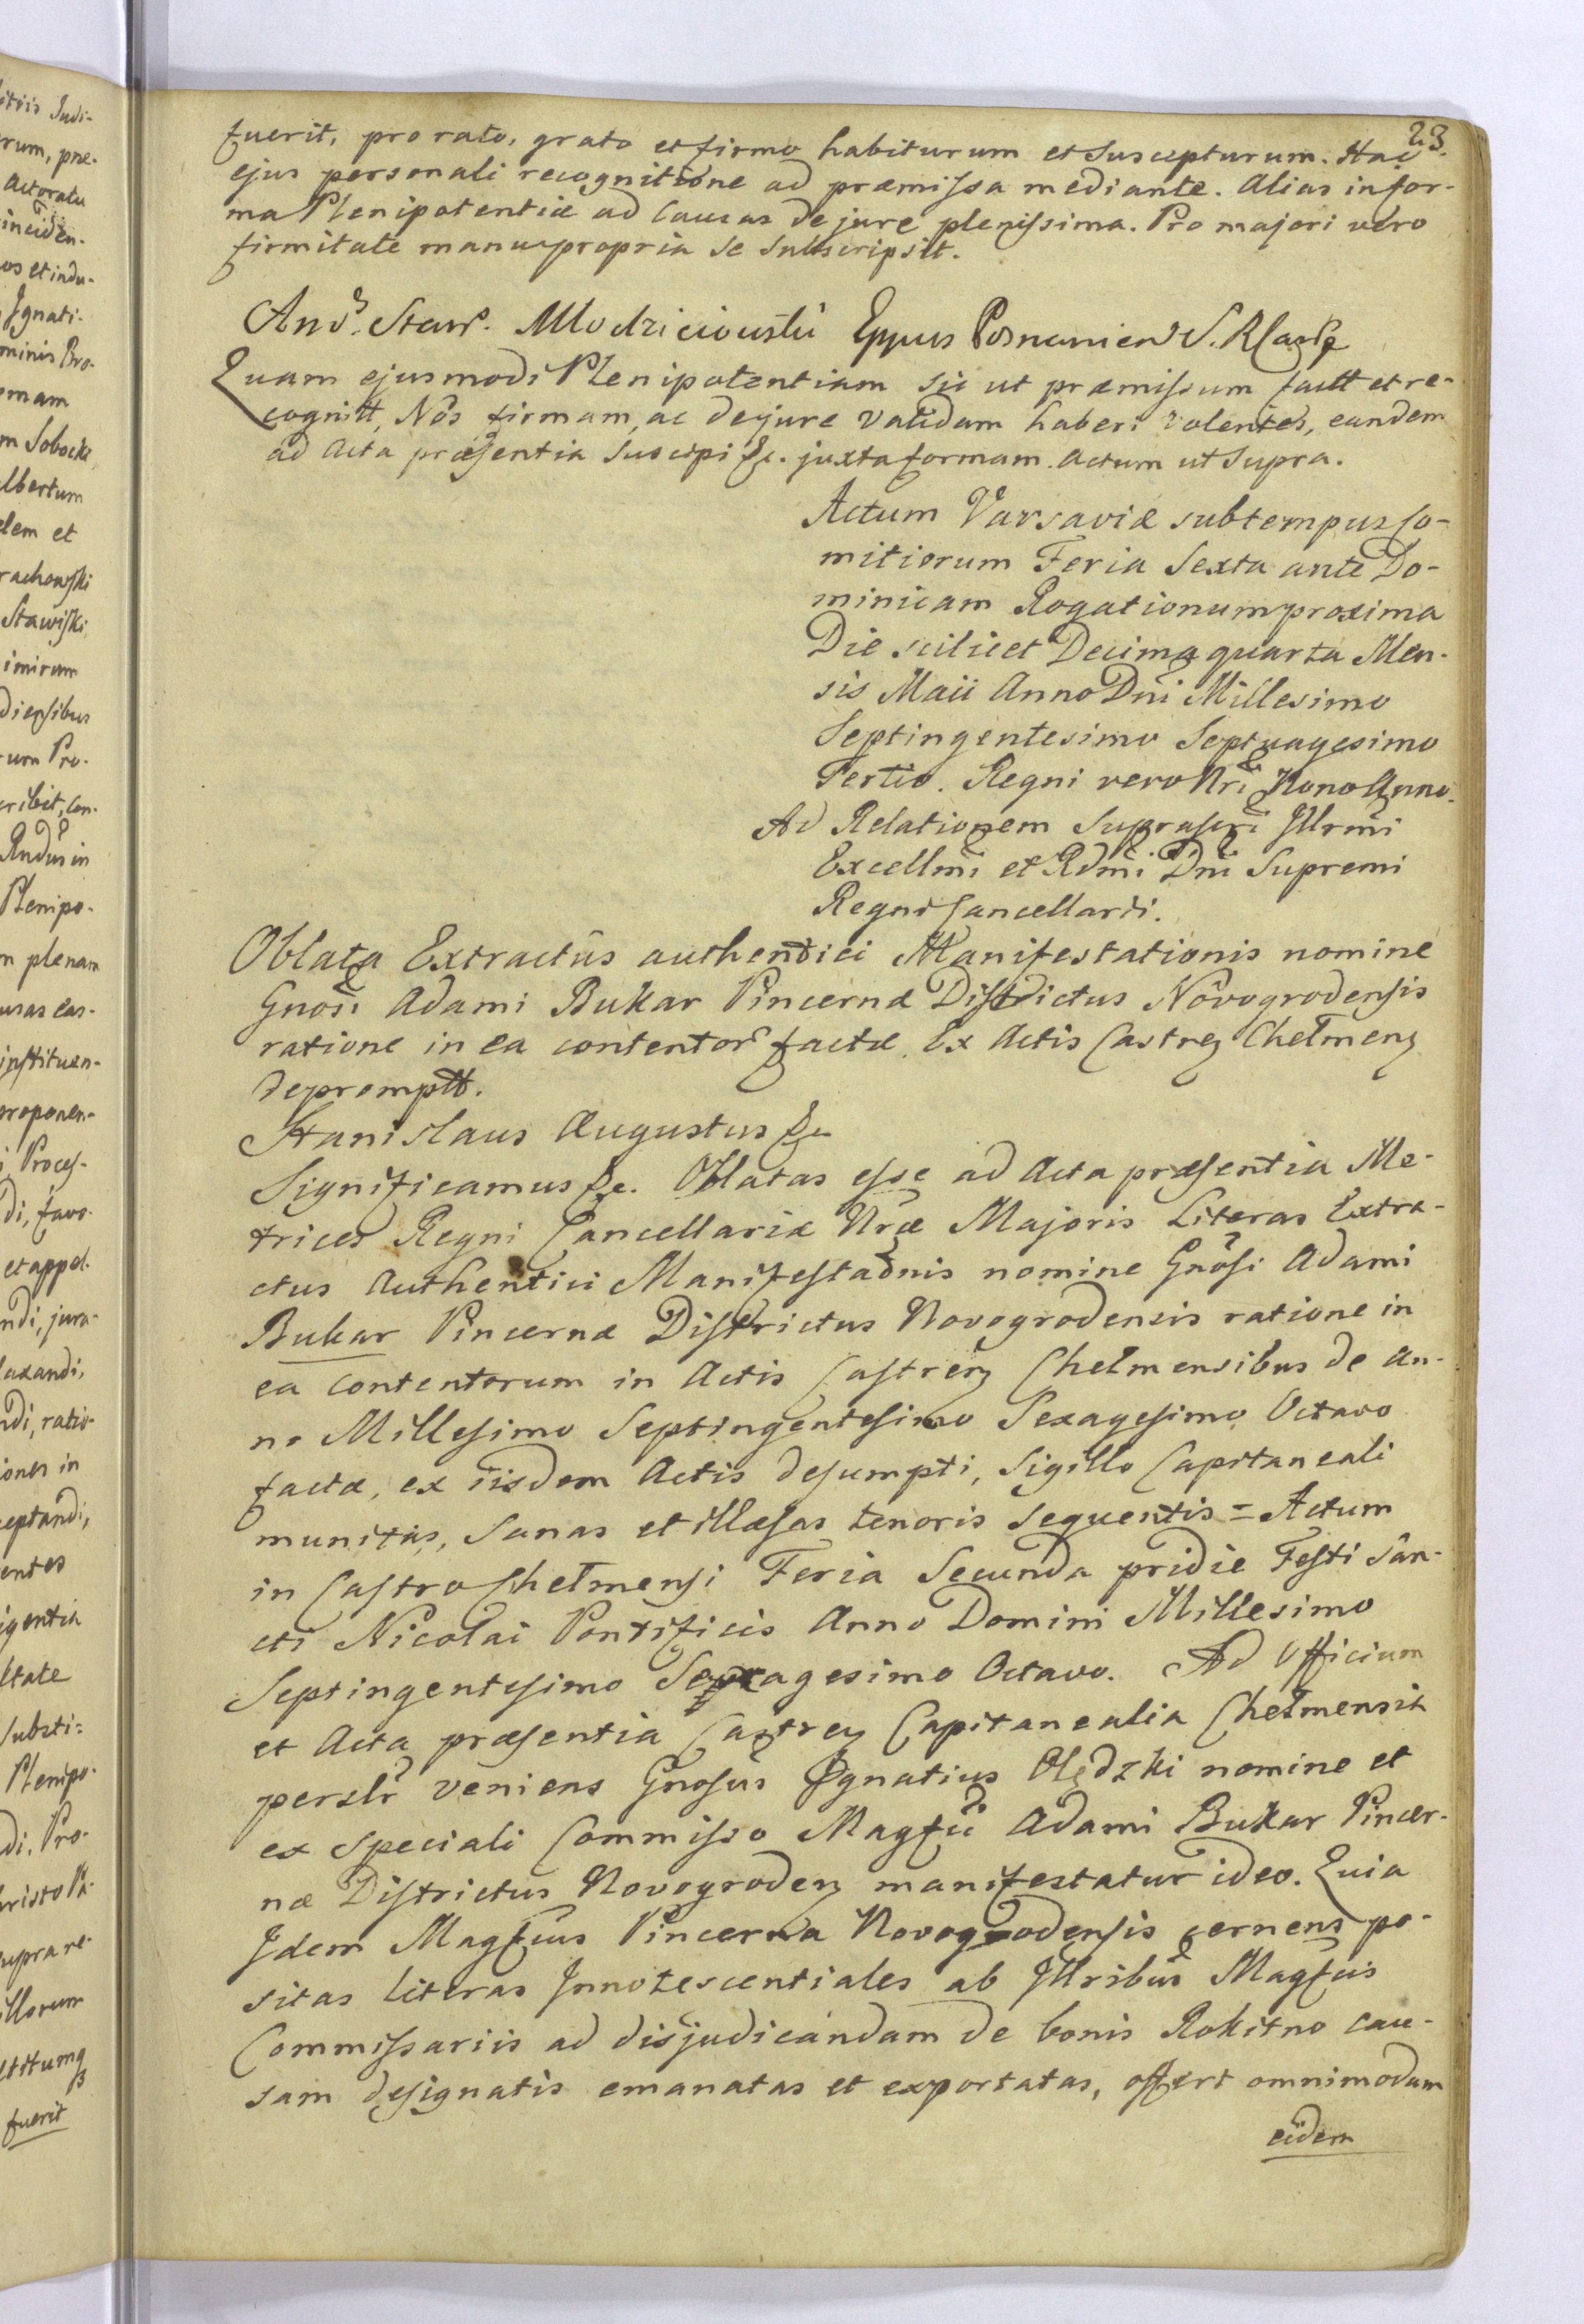 23.
fuerit, pro rato, grato et firmo habiturum et suscepturum. Hac
ejus personali recognitione ad præmissa mediante. Alias in for-
ma Plenipotentiæ ad Causas de jure plenissima. Pro majori vero
firmitate manu propria se subscripsit.
And. Staw. Młodzieiowski Eppus Posnanien S. R.
Quam ejusmodi Plenipotentiam sic ut præmissum facit et re-
cognitt, Nos firmam, ac de jure validam haberi volentes, eandem
ad Acta præsentia suscipi &c. juxta formam. Actum ut supra.
Actum Varsaviæ sub tempus Co-
mitiorum Feria Sexta ante Do-
minicam Rogationum proxima
Die scilicet Decima quarta Men-
sis Maii Anno Dni Millesimo
Septingentesimo Septuagesimo
Tertio. Regni vero Nri Nono Anno.
Ad Relationem suprascri Illrmi
Excellmi et Rdmi Dni Supremi
Regni Cancellarii.
Oblata Extractûs authentici Manifestationis nomine
Gnosi Adami Bukar Pincernæ Districtus Novogrodensis
ratione in ea contentor factæ. Ex Actis Castren Chełmen
depromptt.
Stanislaus Augustus &c.
Significamus &c. Oblatas esse ad Acta præsentia Me-
trices Regni Cancellariæ Nræ Majoris Literas Extra-
ctus Authentici Manifestaonis nomine Gnosi Adami
Bukar Pincernæ Districtus Novogrodensis ratione in
ea contentorum in Actis Castren Chełmensibus de An-
no Millesimo Septingentesimo Sexagesimo Octavo
factæ, ex iisdem Actis desumpti, Sigillo Capitaneali
munitas, sanas et illæsas tenoris sequentis = Actum
in Castro Chełmensi Feria Secunda pridie Festi San-
cti Nicolai Pontificis Anno Domini Millesimo
Septingentesimo Sexagesimo Octavo. Ad Officium
et Acta præsentia Castren Capitanealia Chełmensia
perslr veniens Gnosus Ignatius Olędzki nomine et
ex speciali Commisso Magfci Adami Bukar Pincer-
næ Districtus Novogroden manifestatur ideo. Quia
Idem Magfcus Pincerna Novogrodensis cernens po-
sitas literas Innotescentiales ab Illribus Magfcis
Commissariis ad disjudicandam de bonis Rokitno cau-
sam designatis emanatas et exportatas, offert omnimodam
eidem
itiis Judi-
rum, præ-
Actoratu
inciden-
os et indu-
Ignati-
minis Bro-
m Sobocki
lbertum
dem et
rachowski
Stawiski
imirum
diessibus
rum Pro-
cribit, Con-
Rndus in
Plenipo-
m plenam
usas cas-
instituen-
proponen-
i Proces-
di, favo-
et appel-
ndi, jura-
laxandi,
ndi, ratio-
iones in
ceptandi,
entes
igentia
ltate
substi-
Plenipo-
di. Pro-
hristo Pa-
supra re-
illorum
fuerit